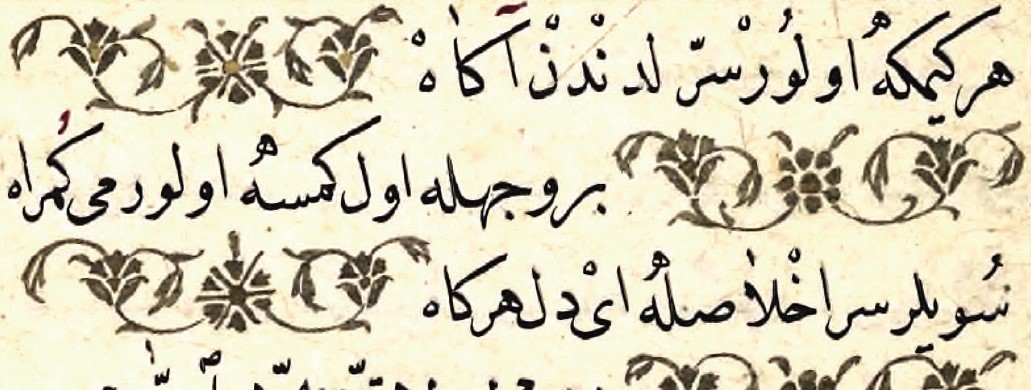 هر کیمکه اولور سرّ لدندن آکاه
بر وجهله اول کمسه اولور می کمراه
سویلر سر اخلاصله ای دل هر کاه